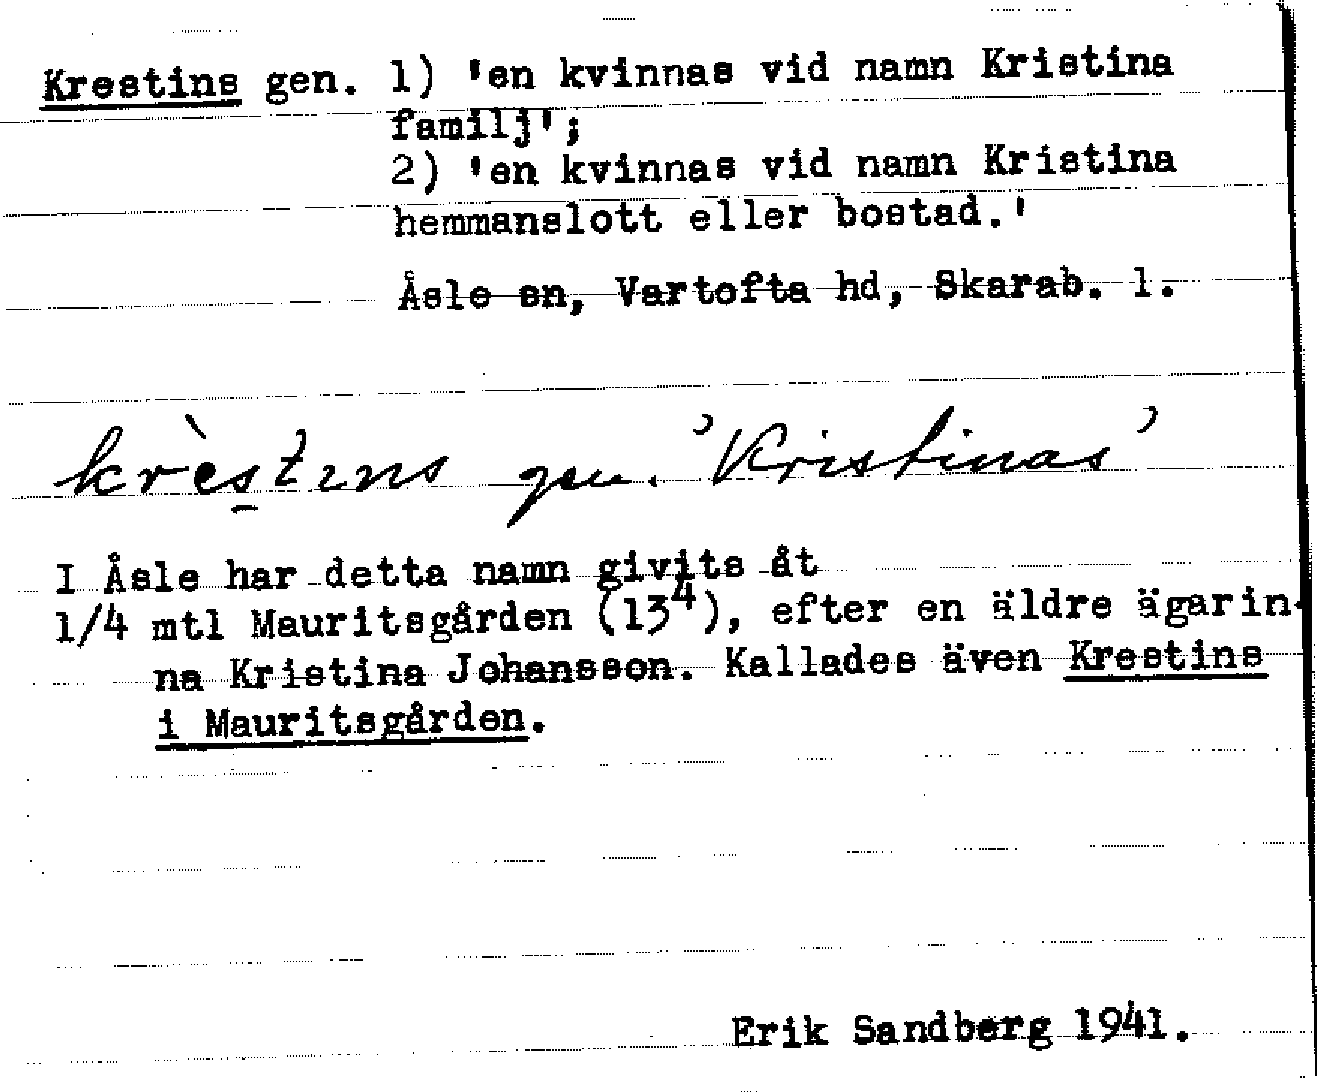 Krestins gen. 1) 'en kvinnas vid namn Kristina
familj';
2) 'en kvinnas vid namn Kristina
hemmanslott eller bostad.'
Åsle sn, Vartofta hd, Skarab. l.
krèstɪns gen. 'Kristinas'
I Åsle har detta namn givits åt
1/4 mtl Mauritsgården (13⁴), efter en äldre ägarin-
na Kristina Johansson. Kallades även Krestins
i Mauritsgården.
Erik Sandberg 1941.